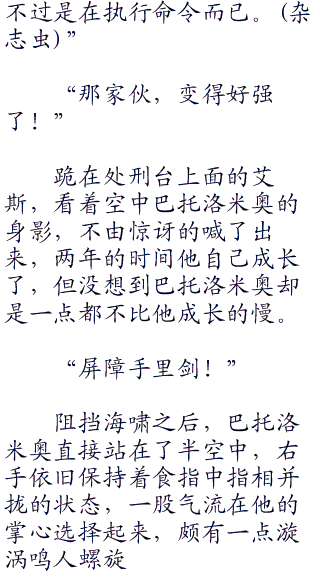 不过是在执行命令而已。(杂
志虫)”
“那家伙，变得好强
了！”
跪在处刑台上面的艾
斯，看着空中巴托洛米奥的
身影，不由惊讶的喊了出
来，两年的时间他自己成长
了，但没想到巴托洛米奥却
是一点都不比他成长的慢。
“屏障手里剑！”
阻挡海啸之后，巴托洛
米奥直接站在了半空中，右
手依旧保持着食指中指相并
拢的状态，一股气流在他的
掌心选择起来，颇有一点漩
涡鸣人螺旋